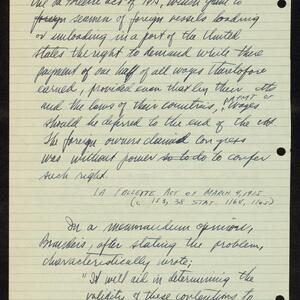 the La Follette Act of 1915, which gave to
foreign seamen of foreign vessels loading
or unloading in a port of the United
States the right to demand while there
payment of one half of all wages theretofore
earned, provided even tho by their
and the laws of their countries, wages
should be deferred to the end of the
The foreign owners claimed Congress
was without power to do to confer
such right.
LA FOLLETTE ACT OF MARCH 4, 1915
(c 153, 38 STAT. 1164, 1165)
In a memorandum opinion,
Brandeis, after stating the problem,
characteristically wrote;
"It will aid in determining the
validity of these contentions to